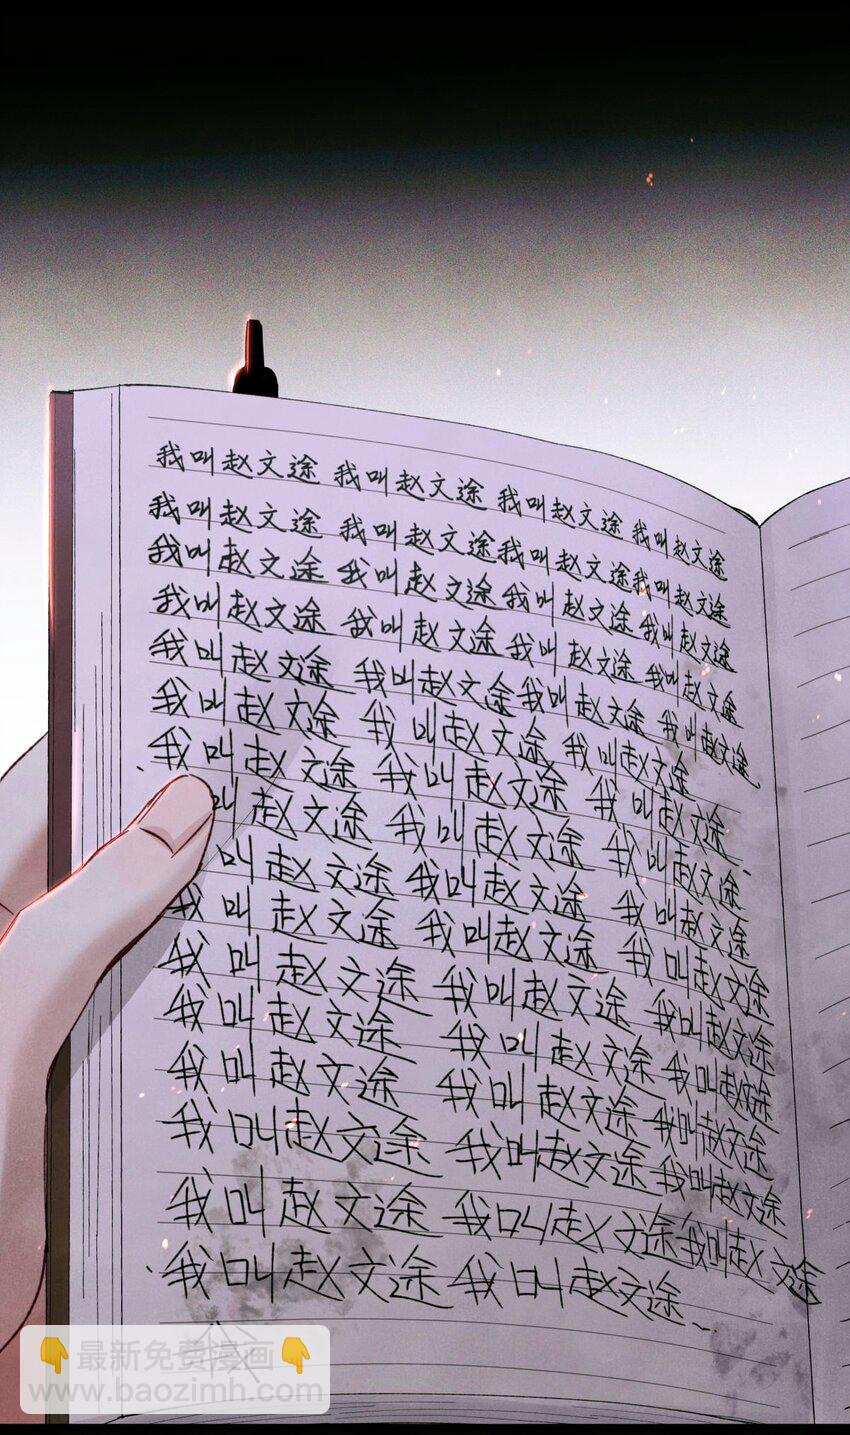 我叫赵文途 我叫赵文途 我叫赵文途 我叫赵文途
我叫赵文途 我叫赵文途 我叫赵文途 我叫赵文途
我叫赵文途 我叫赵文途 我叫赵文途 我叫赵文途
我叫赵文途 我叫赵文途 我叫赵文途 我叫赵文途
我叫赵文途 我叫赵文途 我叫赵文途 我叫赵文途
我叫赵文途 我叫赵文途 我叫赵文途
我叫赵文途 我叫赵文途 我叫赵文途
叫赵文途 我叫赵文途 我叫赵文途
叫赵文途 我叫赵文途 我叫赵文途
我叫赵文途 我叫赵文途 我叫赵文途
我叫赵文途 我叫赵文途 我叫赵文途
我叫赵文途 我叫赵文途 我叫赵文途
我叫赵文途 我叫赵文途 我叫赵文途
我叫赵文途 我叫赵文途 我叫赵文途
我叫赵文途 我叫赵文途 我叫赵文途
我叫赵文途 我叫赵文途
👇最新免费漫画👇
www.baozimh.com